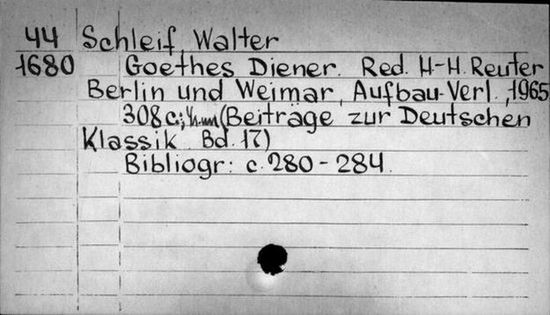 44 Schleif, Walter
1680 Goethes Diener. Red. H-H. Reuter
Berlin und Weimar, Aufbau-Verl., 1965
308 c.; (Beiträge zur Deutschen
Klassik Bd. 17)
Bibliogr: c. 280-284.